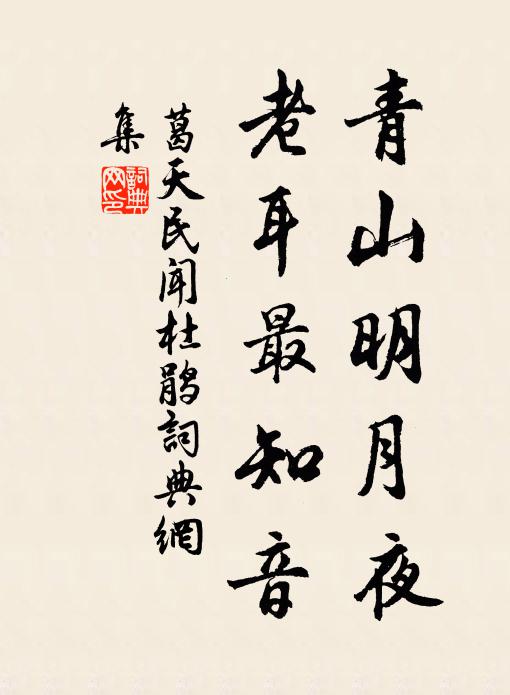 青山明月夜
老耳最知音
葛天民闻杜鹃詞典網
集
詞典
网印